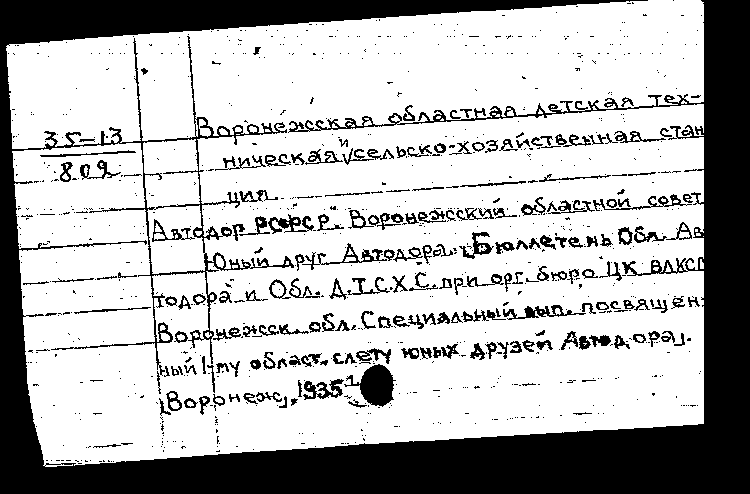 35-13
802
Воронежская областная детская тех-
ническая и сельско-хозяйственная стан
ция.
Автодор РСФСР. Воронежский областной совет
Юный друг Автодора. [Бюллетень Обл. Ав
тодора и Обл. Д.Т.С.Х.С. при орг. бюро ЦК ВЛКСМ
Воронежск. обл. Специальный вып. посвящен-
ный 1-му област. слету юных друзей Автодора].
[Воронеж], 1935